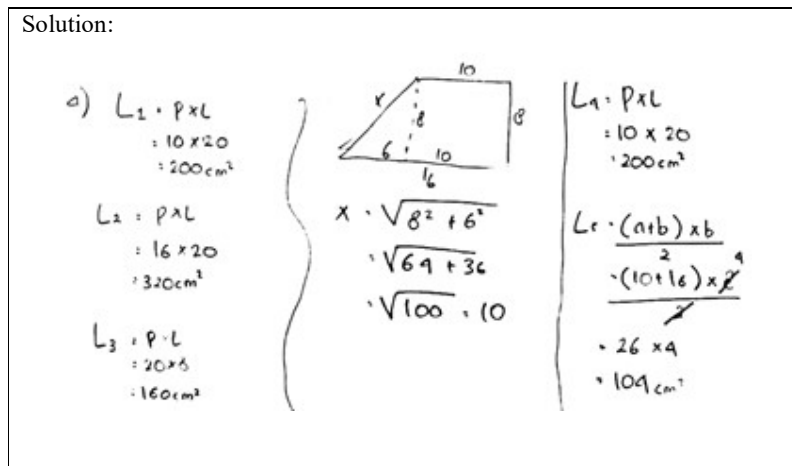 Solution:
a) L1 = P x L
= 10 x 20
= 200 cm²
L2 = P x L
= 16 x 20
= 320 cm²
L3 = P · L
= 20 x 8
= 160 cm²
10
x
8
8
6
10
16
x = √8² + 6²
= √64 + 36
= √100 = 10
L4 = P x L
= 10 x 20
= 200 cm²
L5 = (a+b) x b
2
4
= (10+16) x 8
2
= 26 x 4
= 104 cm²